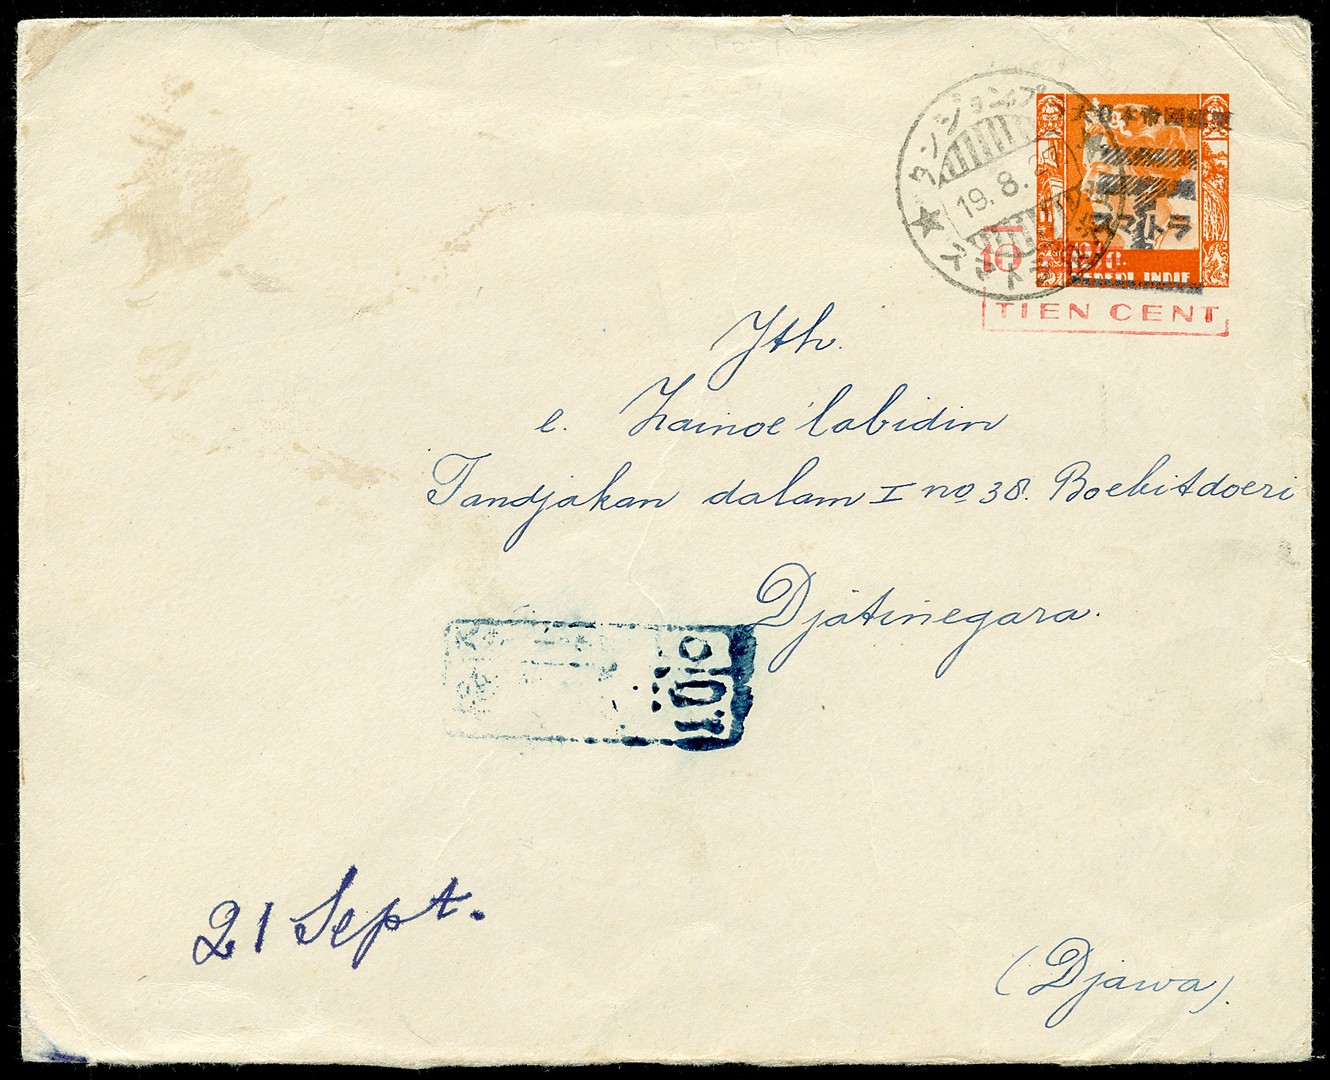 タンジョンプ
19.8.27
スマトラ
大日本帝国郵便
スマトラ
10
NEDERL. INDIE
TIEN CENT
Jth.
e. Zainoe'labidin
Tandjakan dalam I no 38. Boekitdoeri
Djatinegara.
21 Sept.
(Djawa).